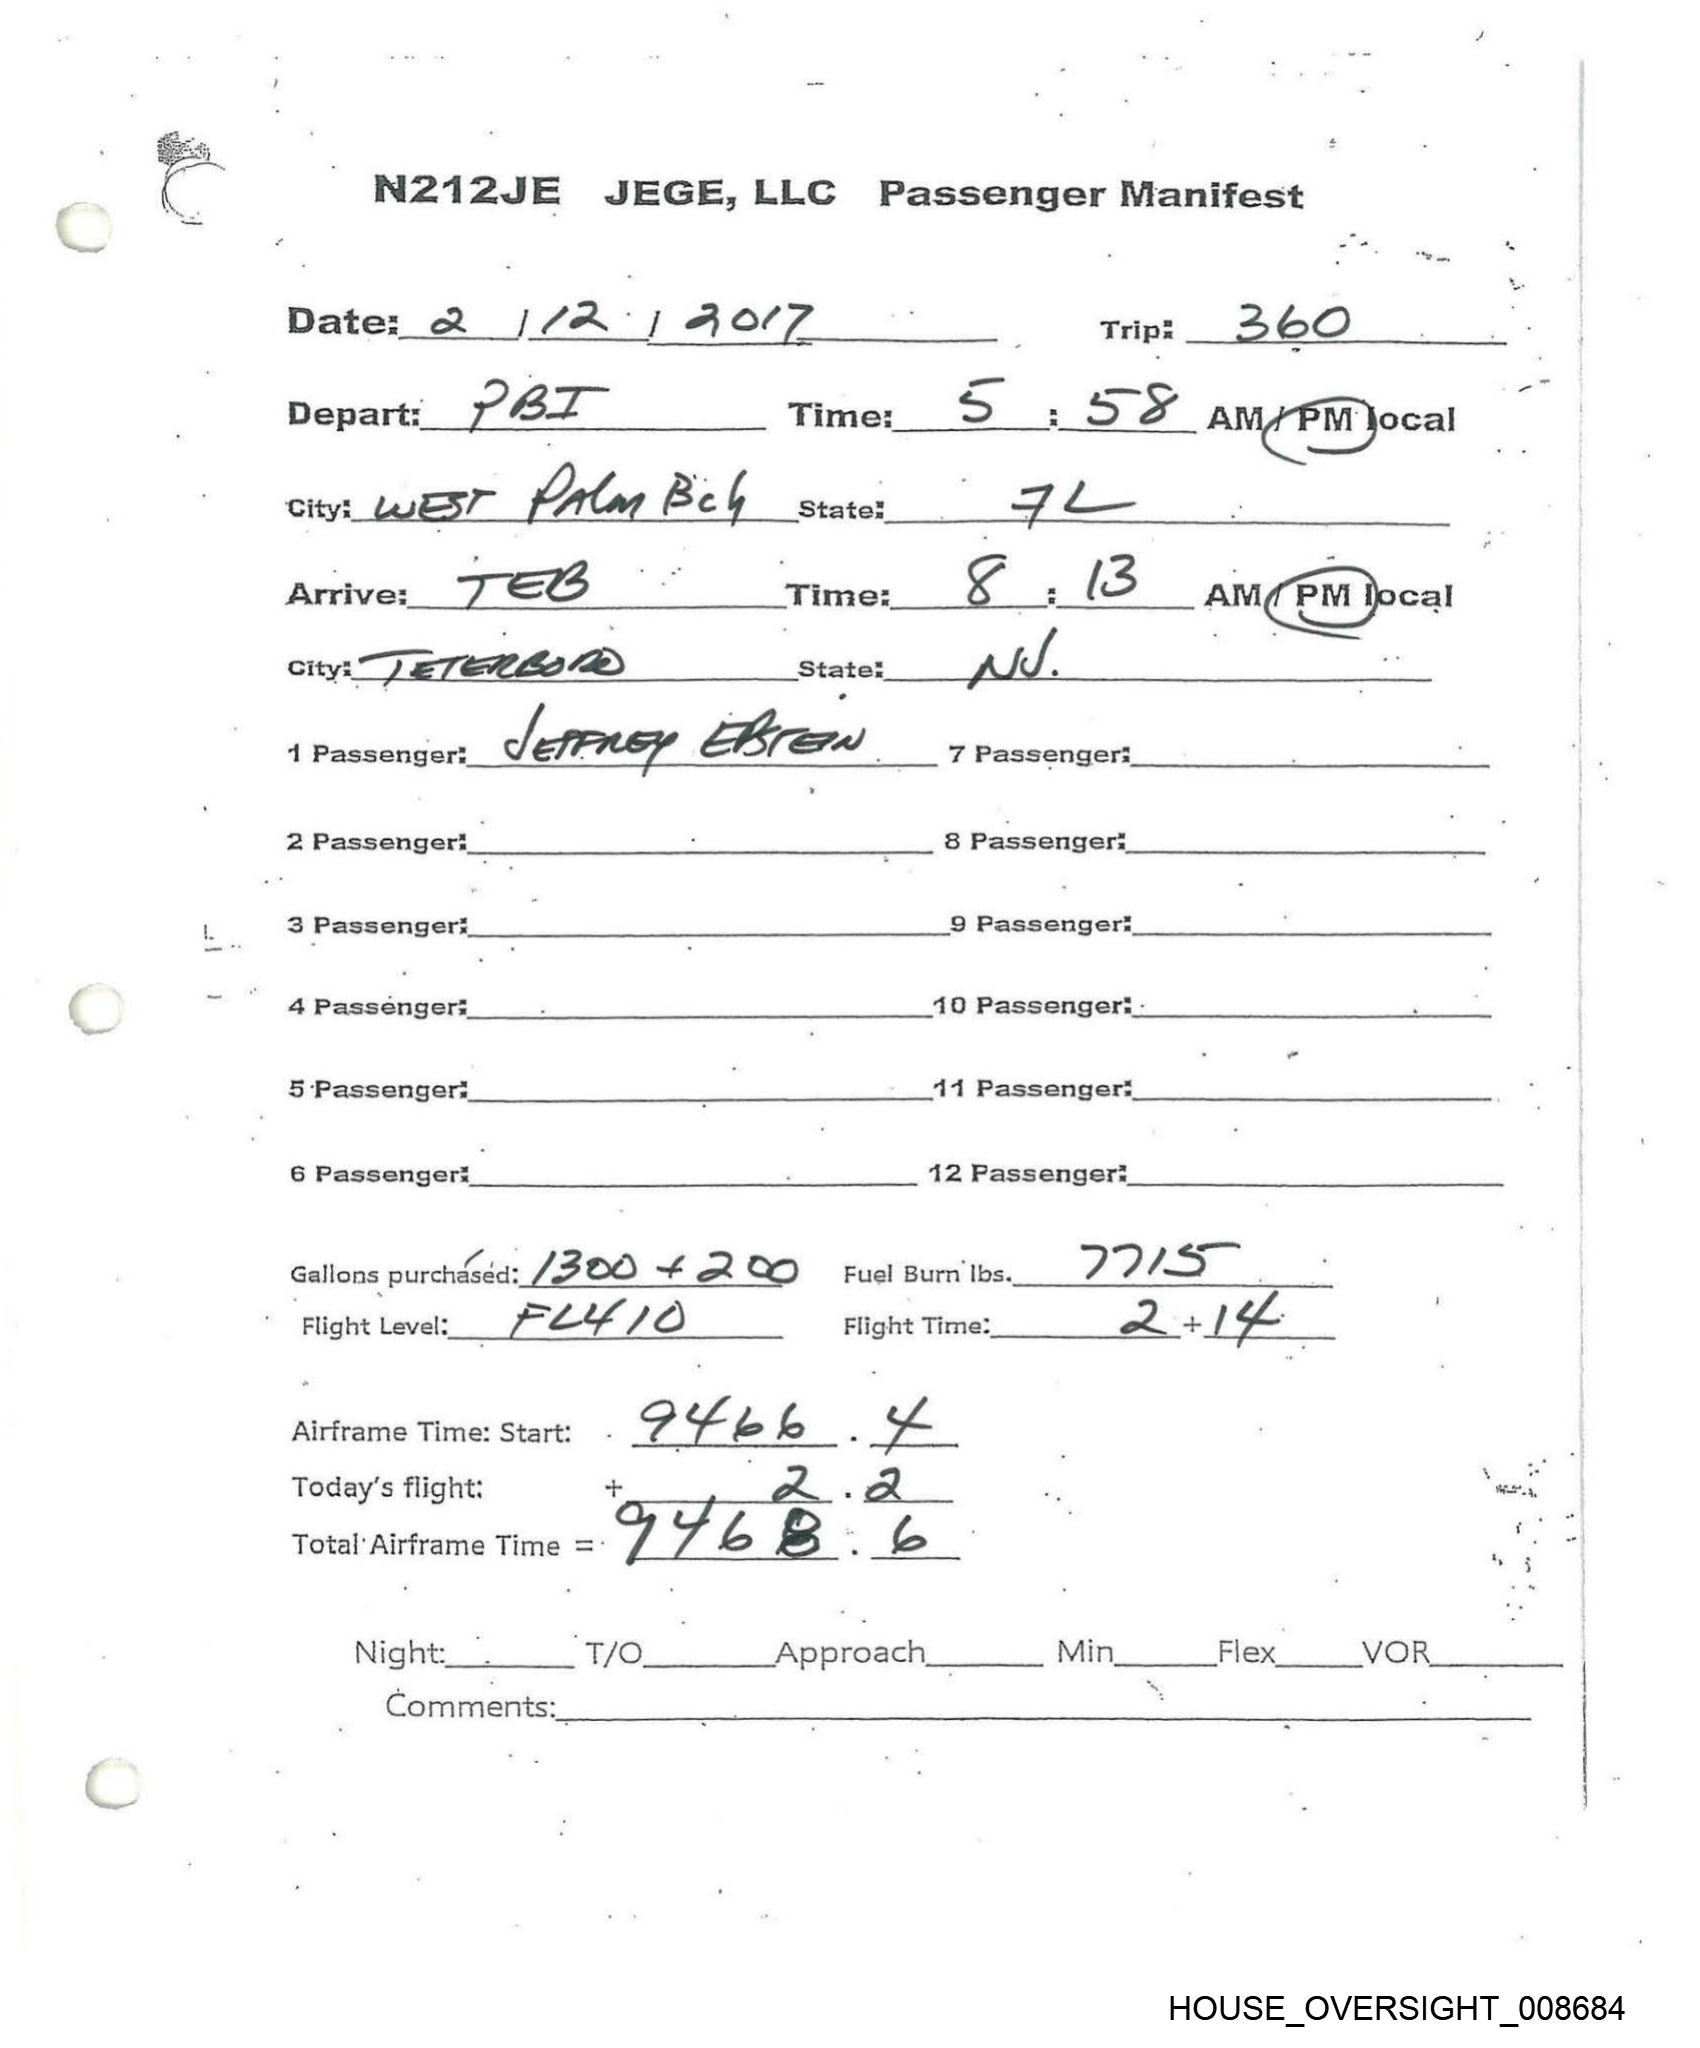 N212JE JEGE, LLC Passenger Manifest
Date: 2 / 12 / 2017 Trip: 360
Depart: PBI Time: 5 : 58 AM / PM local
City: WEST PAlm Bch State: FL
Arrive: TEB Time: 8 : 13 AM / PM local
City: TETERBORO State: NJ.
1 Passenger: JEFFREY EPSTEIN 7 Passenger:
2 Passenger: 8 Passenger:
3 Passenger: 9 Passenger:
4 Passenger: 10 Passenger:
5 Passenger: 11 Passenger:
6 Passenger: 12 Passenger:
Gallons purchased: 1300 + 200 Fuel Burn lbs. 7715
Flight Level: FL410 Flight Time: 2 + 14
Airframe Time: Start: 9466 . 4
Today's flight: + 2 . 2
Total Airframe Time = 9468 . 6
Night: T/O Approach Min Flex VOR
Comments:
HOUSE_OVERSIGHT_008684